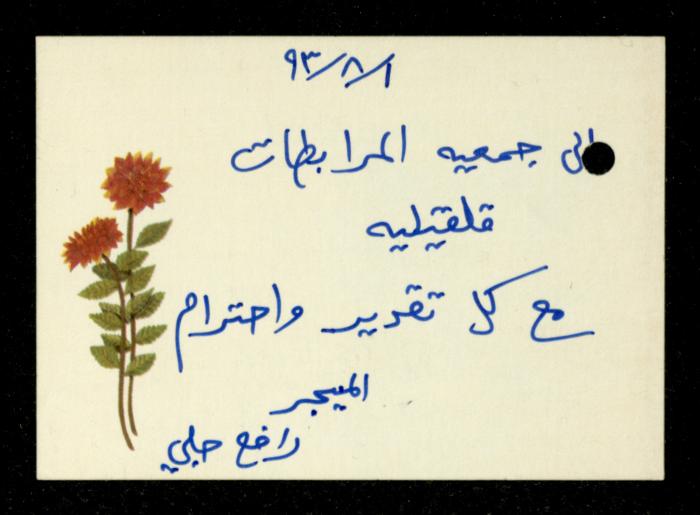 ٩٣/٨/١
الى جمعيه المرابطات
قلقيليه
مع كل تقدير واحترام
الميجر
رافع حلبي